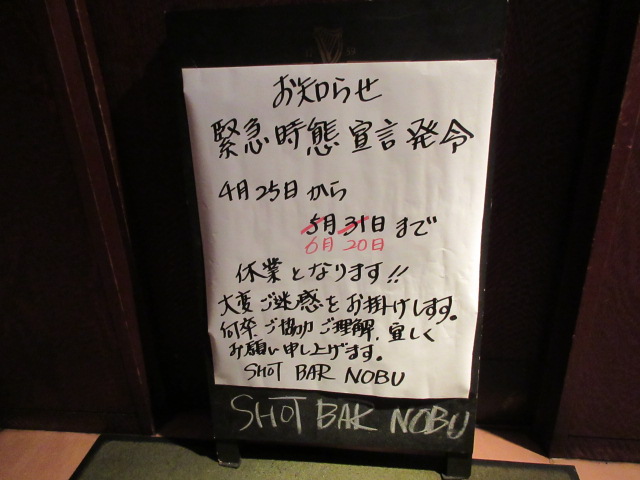 お知らせ
緊急時態宣言発令
4月25日から
5月31日まで
6月20日
休業となります!!
大変ご迷惑をお掛けします。
何卒、ご協力ご理解、宜しく
お願い申し上げます。
SHOT BAR NOBU
SHOT BAR NOBU